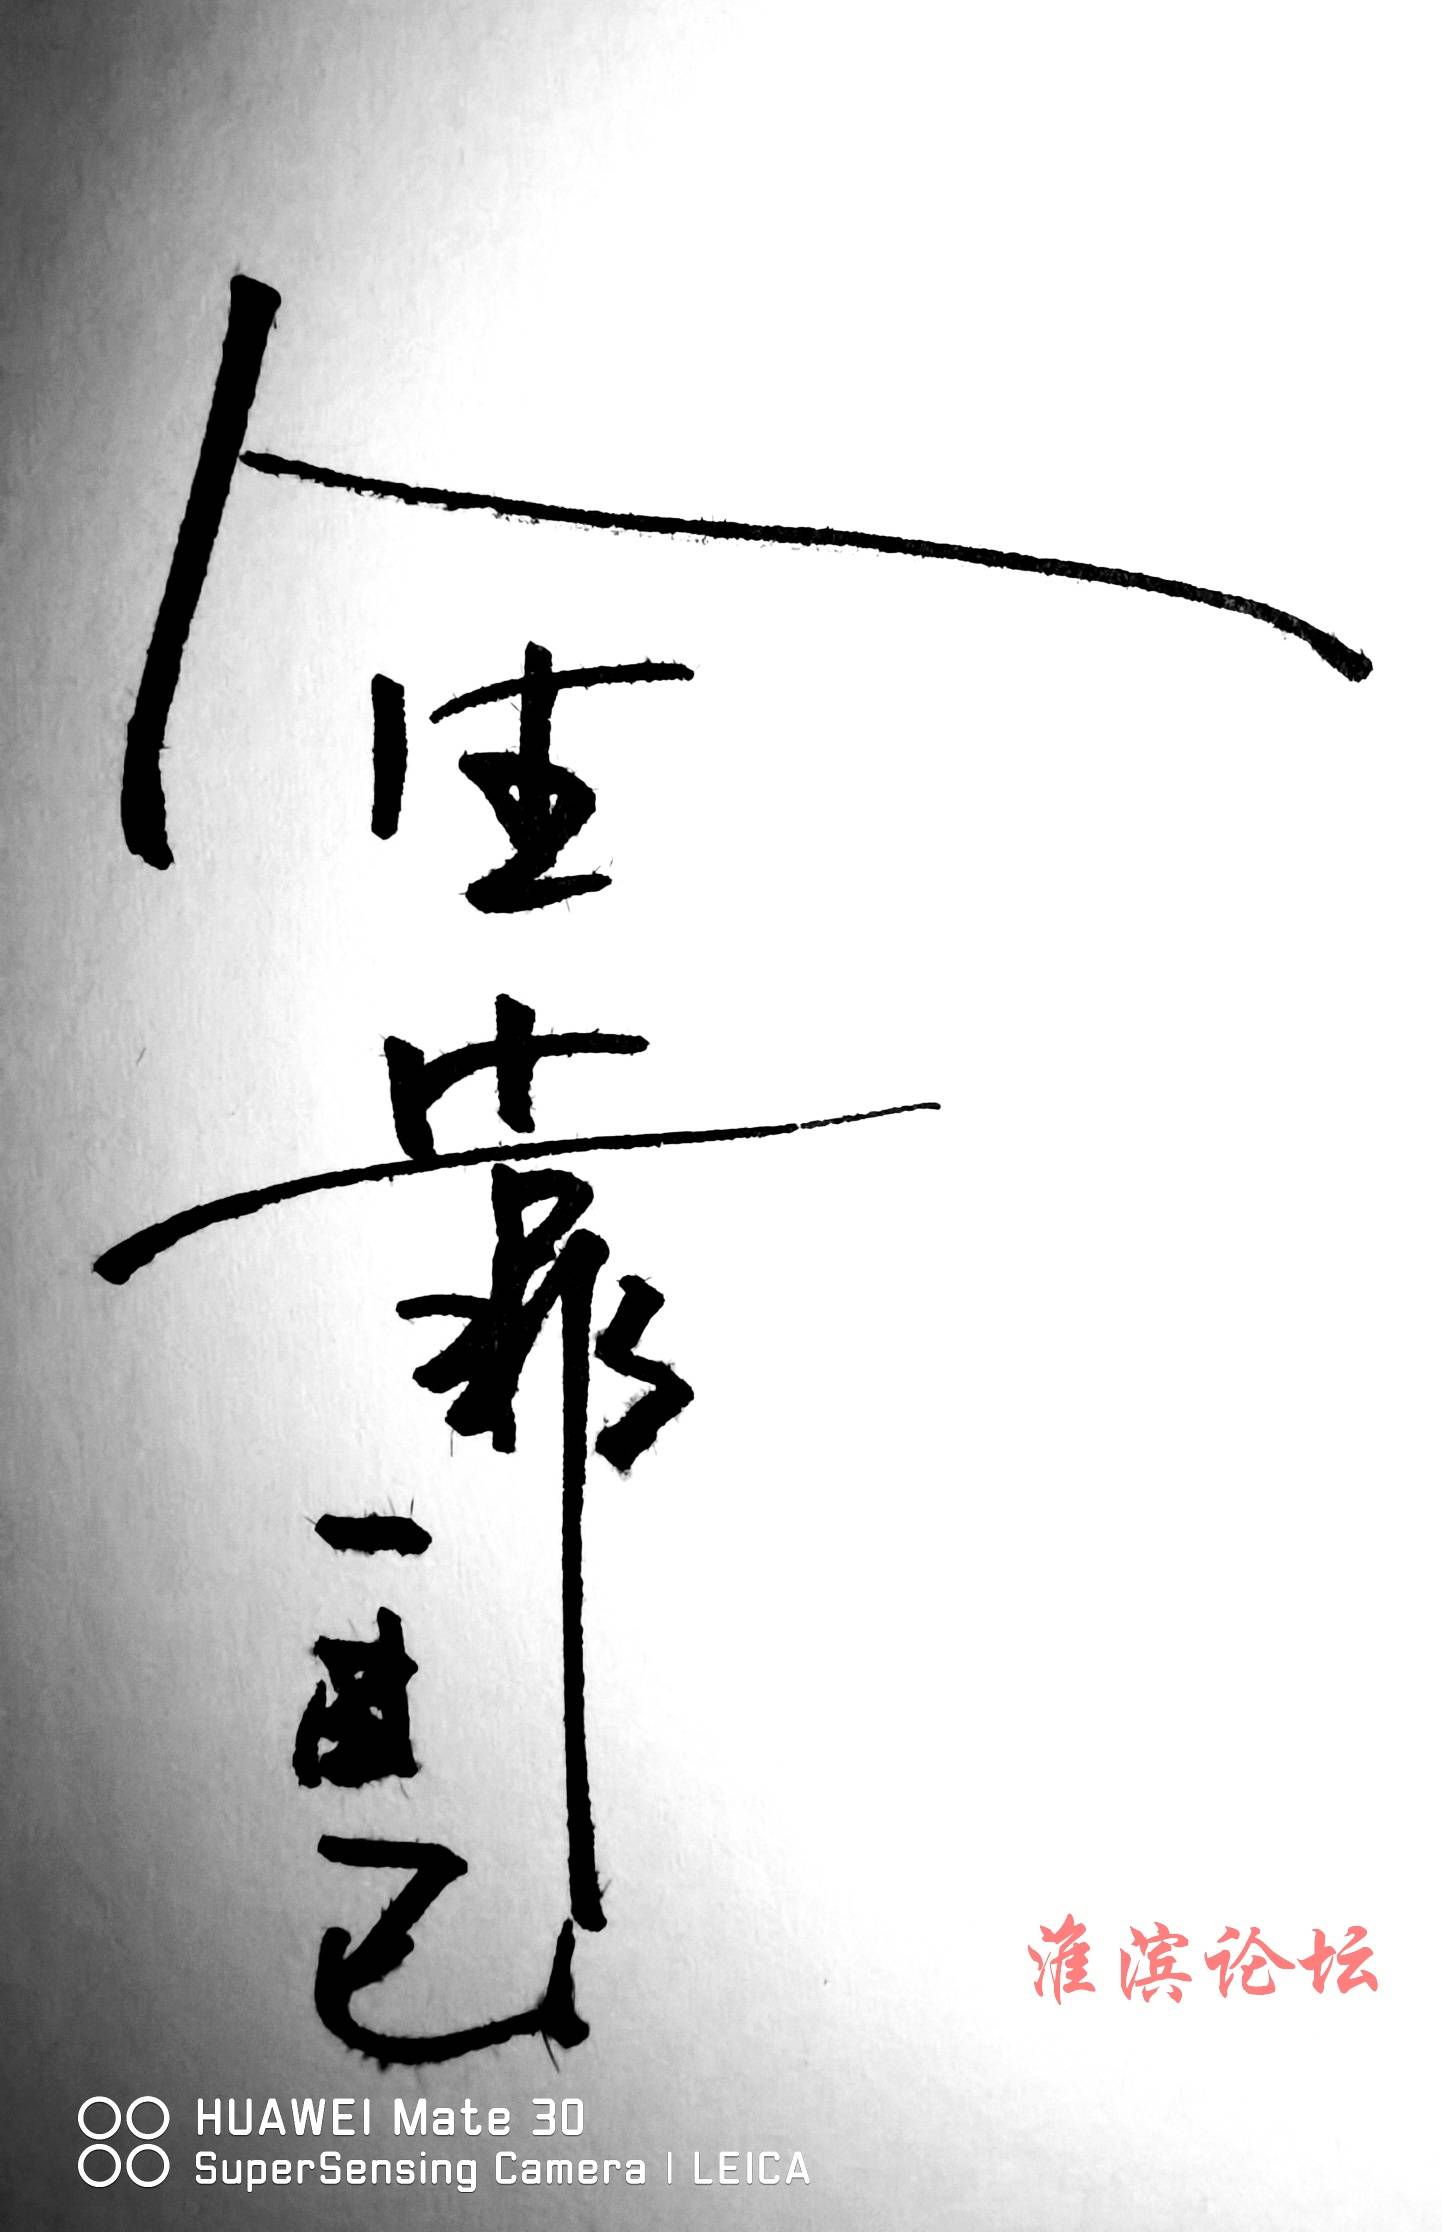 人生靠一自己
淮滨论坛
HUAWEI Mate 30
SuperSensing Camera | LEICA